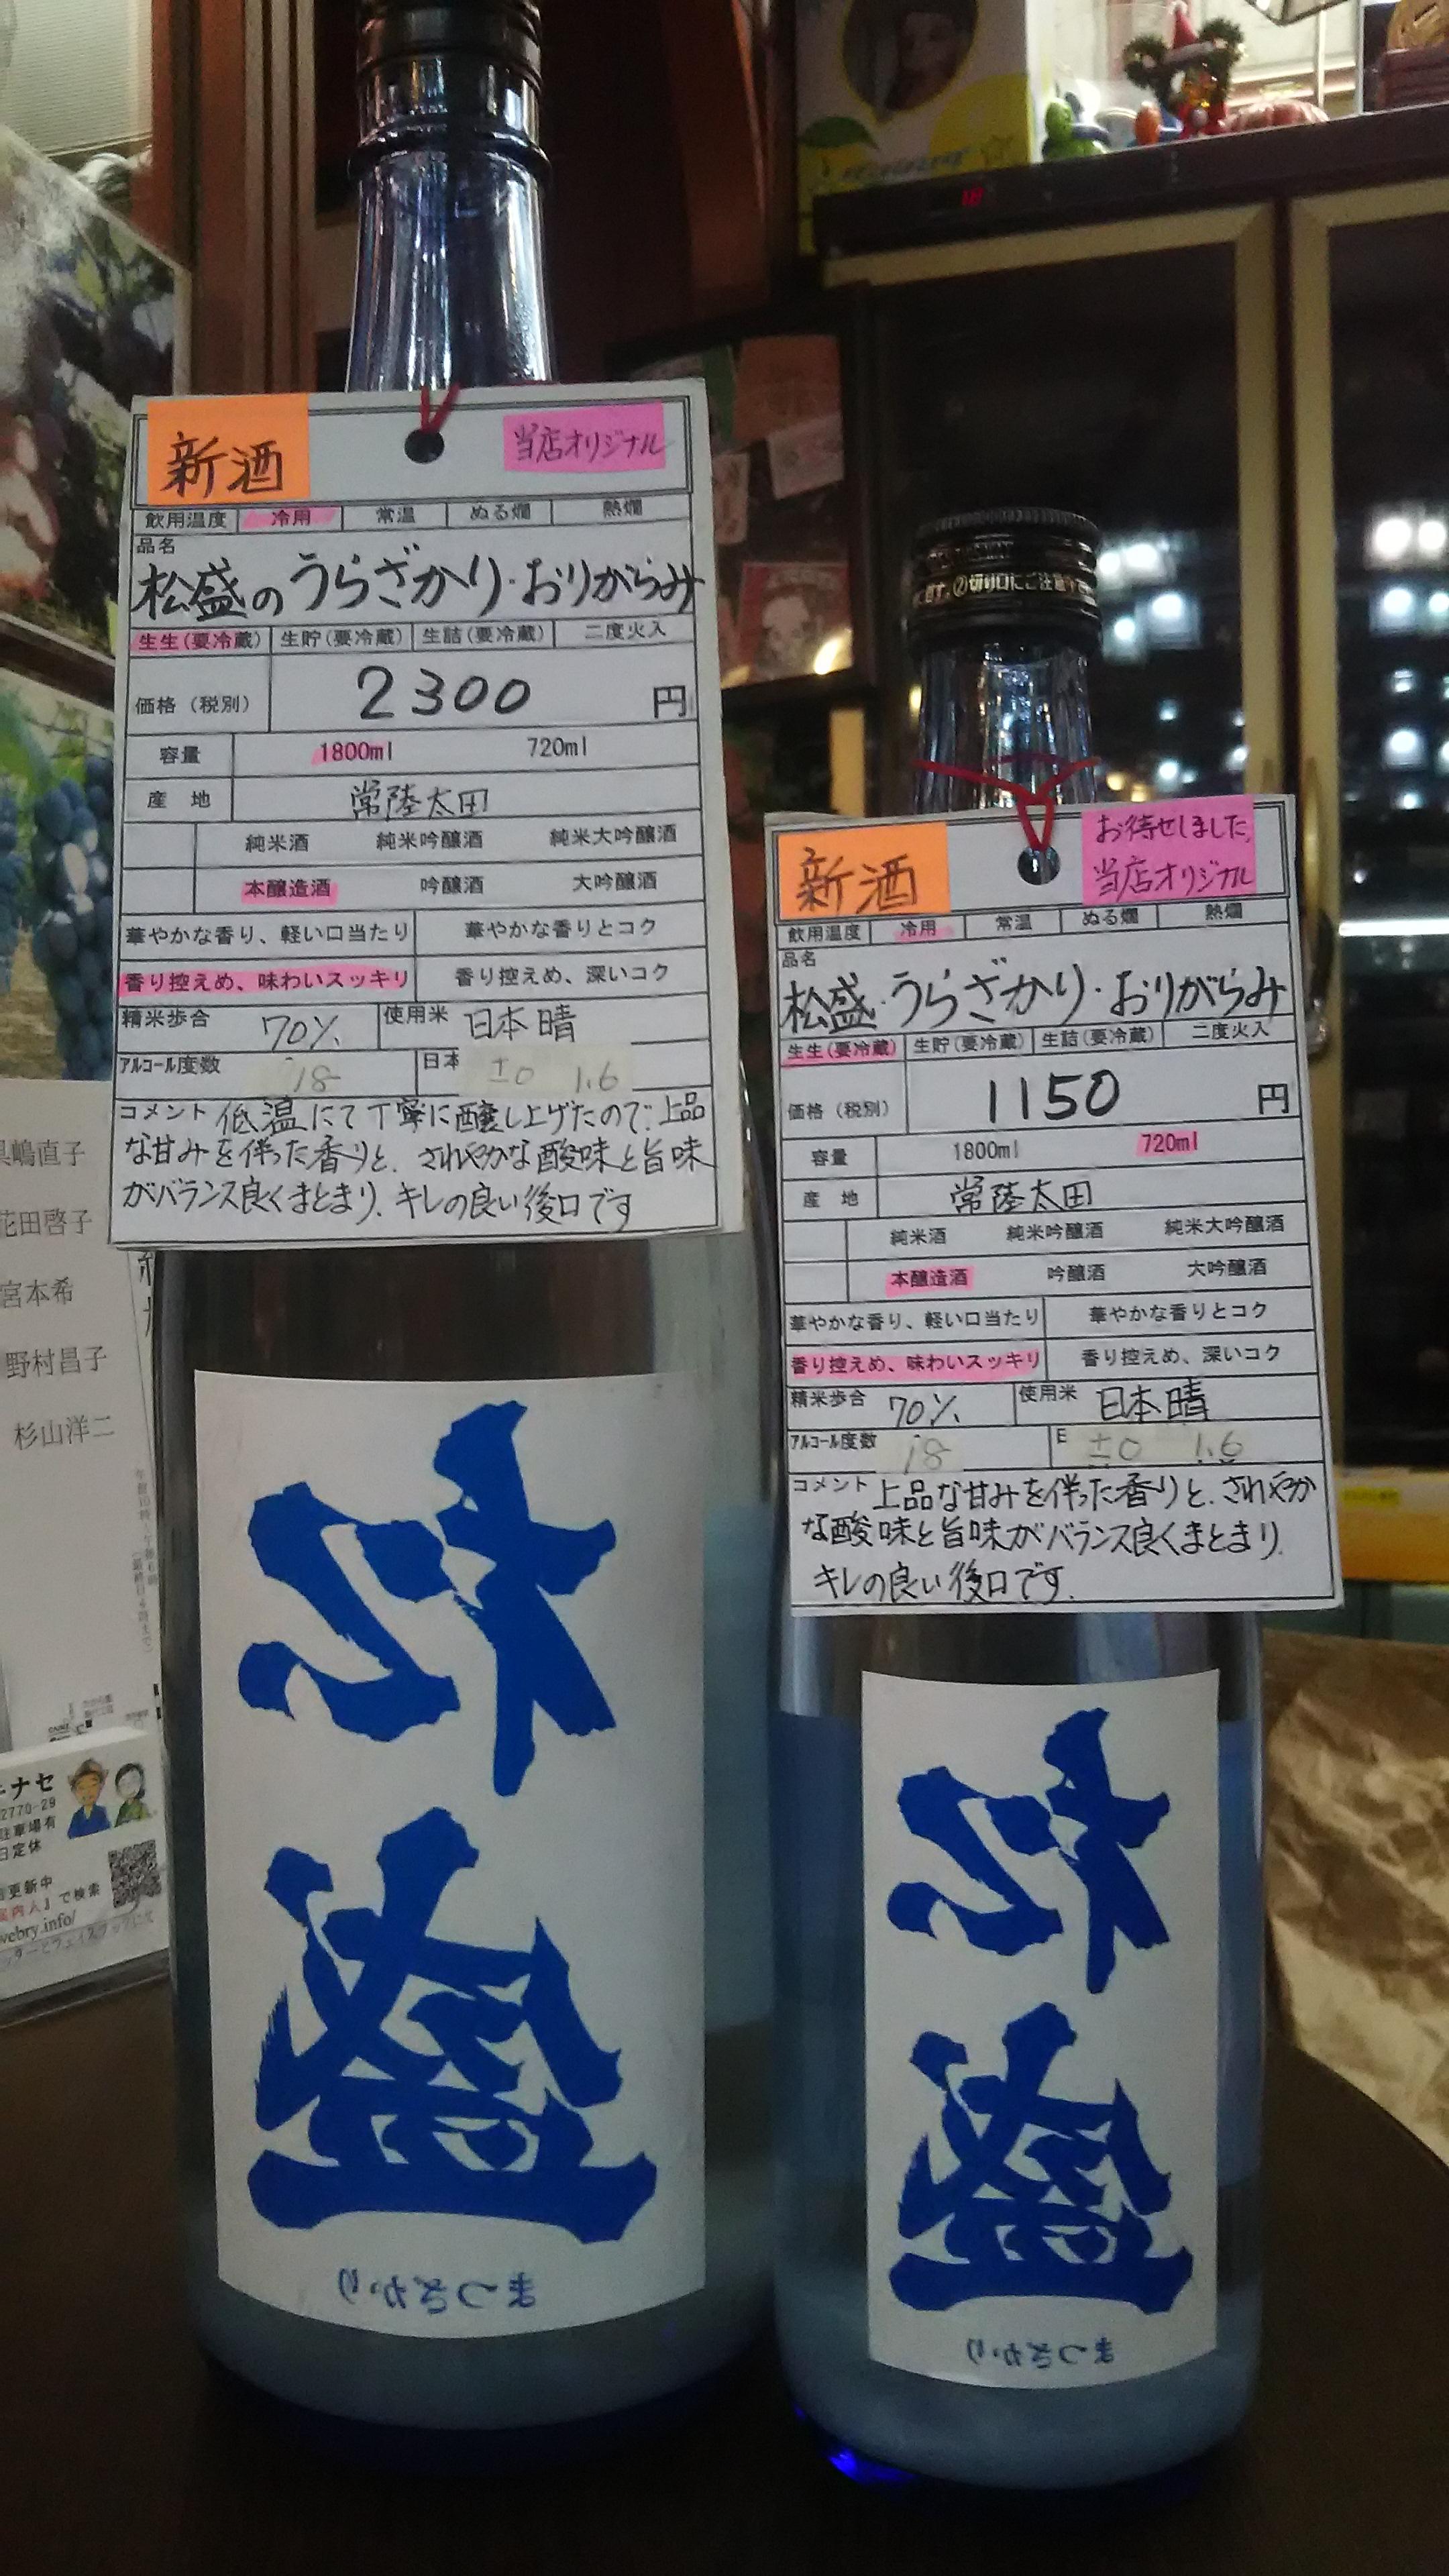 新酒
当店オリジナル
飲用温度 冷用 常温 ぬる燗 熱燗
品名
松盛のうらざかり・おりがらみ
生生(要冷蔵) 生貯(要冷蔵) 生詰(要冷蔵) 二度火入
価格(税別) 2300 円
容量 1800ml 720ml
産 地 常陸太田
純米酒 純米吟醸酒 純米大吟醸酒
本醸造酒 吟醸酒 大吟醸酒
華やかな香り、軽い口当たり 華やかな香りとコク
香り控えめ、味わいスッキリ 香り控えめ、深いコク
精米歩合 70% 使用米 日本晴
アルコール度数 18 日本 ±0 1.6
コメント 低温にて丁寧に醸し上げたので、上品
な甘みを伴った香りと、さわやかな酸味と旨味
がバランス良くまとまり、キレの良い後口です
松盛
まつざかり
②切り口にご注意
新酒
お待せしました。
当店オリジナル
飲用温度 冷用 常温 ぬる燗 熱燗
品名
松盛・うらざかり・おりがらみ
生生(要冷蔵) 生貯(要冷蔵) 生詰(要冷蔵) 二度火入
価格(税別) 1150 円
容量 1800ml 720ml
産 地 常陸太田
純米酒 純米吟醸酒 純米大吟醸酒
本醸造酒 吟醸酒 大吟醸酒
華やかな香り、軽い口当たり 華やかな香りとコク
香り控えめ、味わいスッキリ 香り控えめ、深いコク
精米歩合 70% 使用米 日本晴
アルコール度数 18 ±0 1.6
コメント 上品な甘みを伴った香りと、さわやか
な酸味と旨味がバランス良くまとまり、
キレの良い後口です.
松盛
まつざかり
嶋直子
花田啓子
宮本希
野村昌子
杉山洋二
ナセ
2770-29
駐車場有
日定休
更新中
内人』で検索
webry.info/